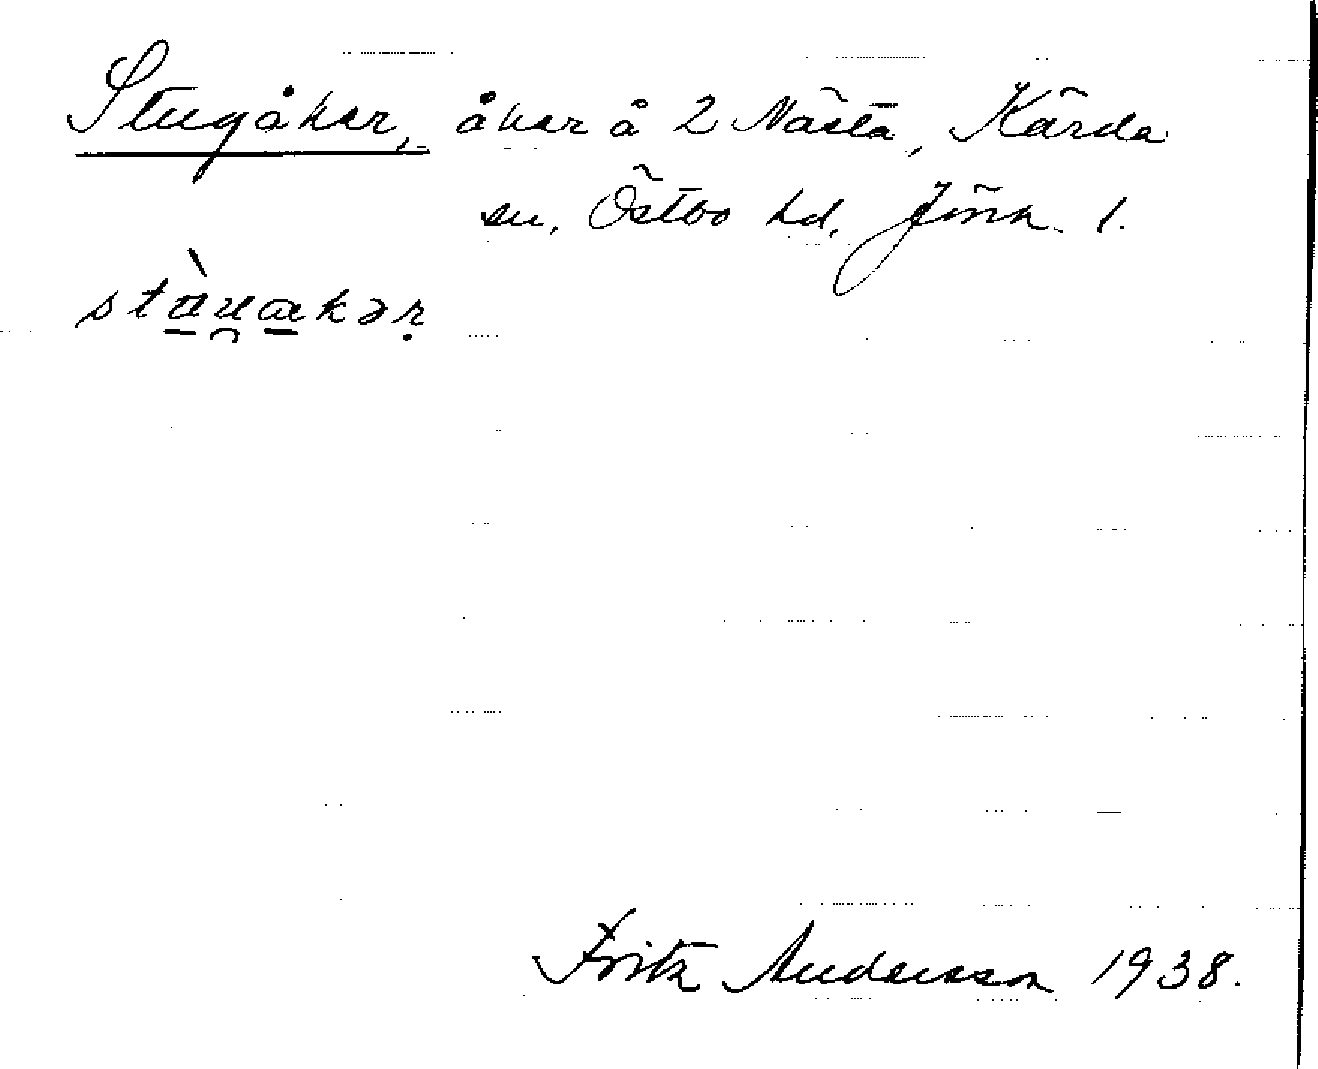 Stugåker, åker å 2 Nästa, Kärda
sn, Östbo hd, Jönk. l.
Fritz Andersson 1938.